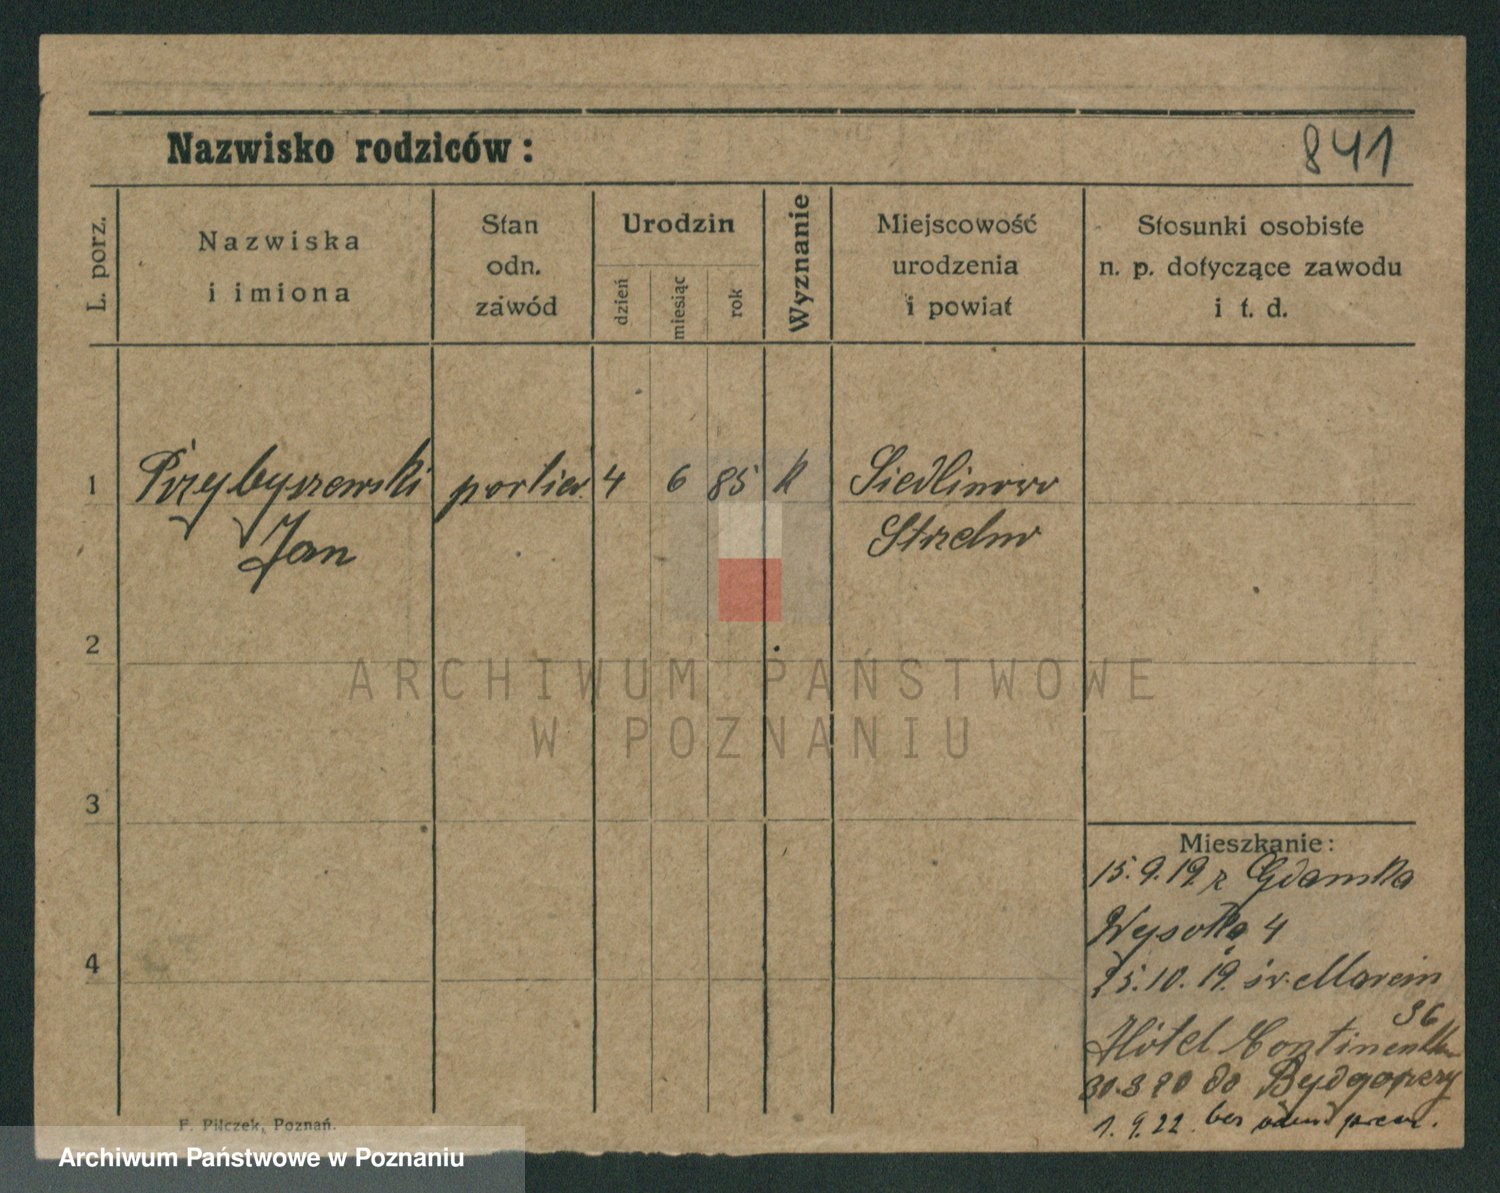 Nazwisko rodziców:
841
L. porz.
Nazwiska
i imiona
Stan
odn.
zawód
Urodzin
dzień
miesiąc
rok
Wyznanie
Miejscowość
urodzenia
i powiat
Stosunki osobiste
n. p. dotyczące zawodu
i t. d.
1 Przybyszewski portier 4 6 85 k Siedlimowo
Jan Strzelno
2
3
4
Mieszkanie:
15.9.19. z Gdańska
Wysoka 4
25.10.19. św. Marcin
36
Hôtel Continental
30.3 20 do Bydgoszczy
1.9.22. bez
F. Pilczek, Poznań.
ARCHIWUM PAŃSTWOWE
W POZNANIU
Archiwum Państwowe w Poznaniu